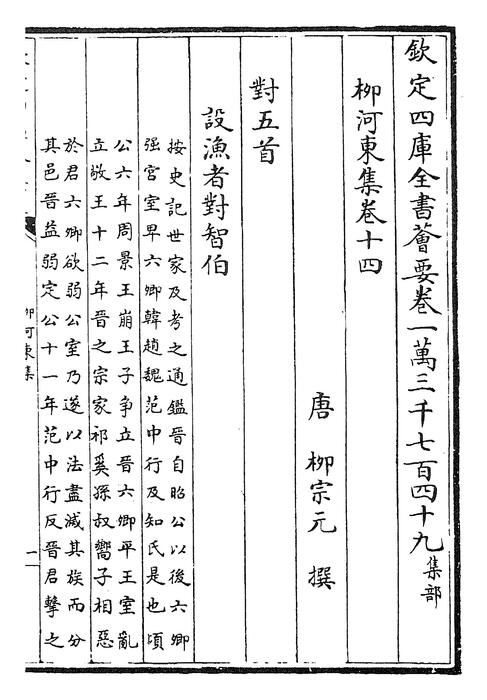 欽定四庫全書薈要卷一萬三千七百四十九集部
柳河東集卷十四
唐 柳宗元 撰
對五首
設漁者對智伯
按史記世家及考之通鑑晉自昭公以後六卿
强官室卑六卿韓趙魏范中行及知氏是也頃
公六年周景王崩王子争立晉六卿平王室亂
立敬王十二年晉之宗家祁奚孫叔嚮子相惡
於君六卿欲弱公室乃遂以法盡滅其族而分
其邑晉益弱定公十一年范中行反晉君擊之
柳河東集
一